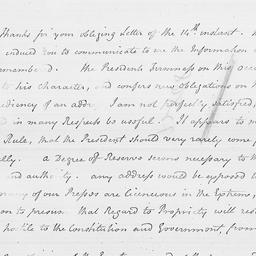 Thanks for your obliging Letter of the 14th instant.
induced you to communicate to me the Information
remembered. The Presidents Firmness on this
to his character, and confers new obligations on
expediency of an address I am not perfectly satisfied,
in many Respects be useful. It appears to m
Rule, that the President should very rarely come
ally. a Degree of Reserve seems necessary to
and authority. any address would be exposed
many of our Presses are licencious in the Extreme,
on to presume that Regard to Propriety will rest
hostile to the Constitution and Government, from